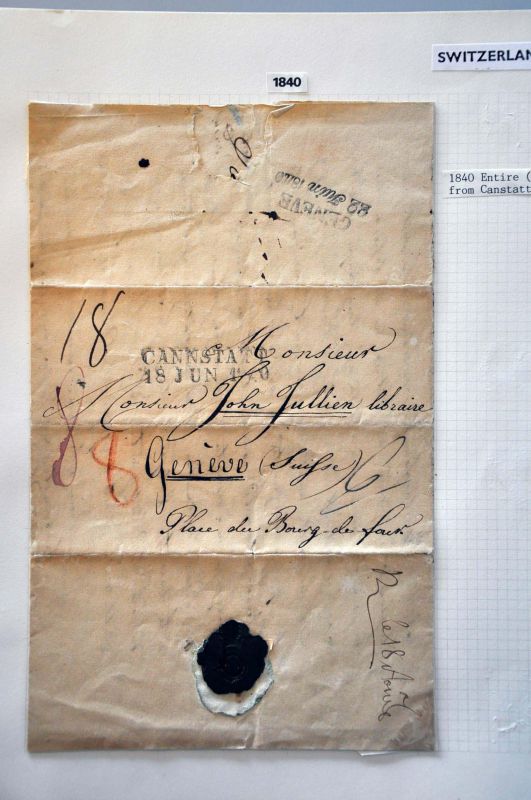 SWITZERLAN
1840
1840 Entire (
from Canstatt
GENÈVE
22 Juin 1840
18
CANNSTATT
18 JUN 1840
Monsieur
Monsieur John Jullien libraire
8
8
Genève (Suisse)
Place du Bourg-de four
R le 18 Août